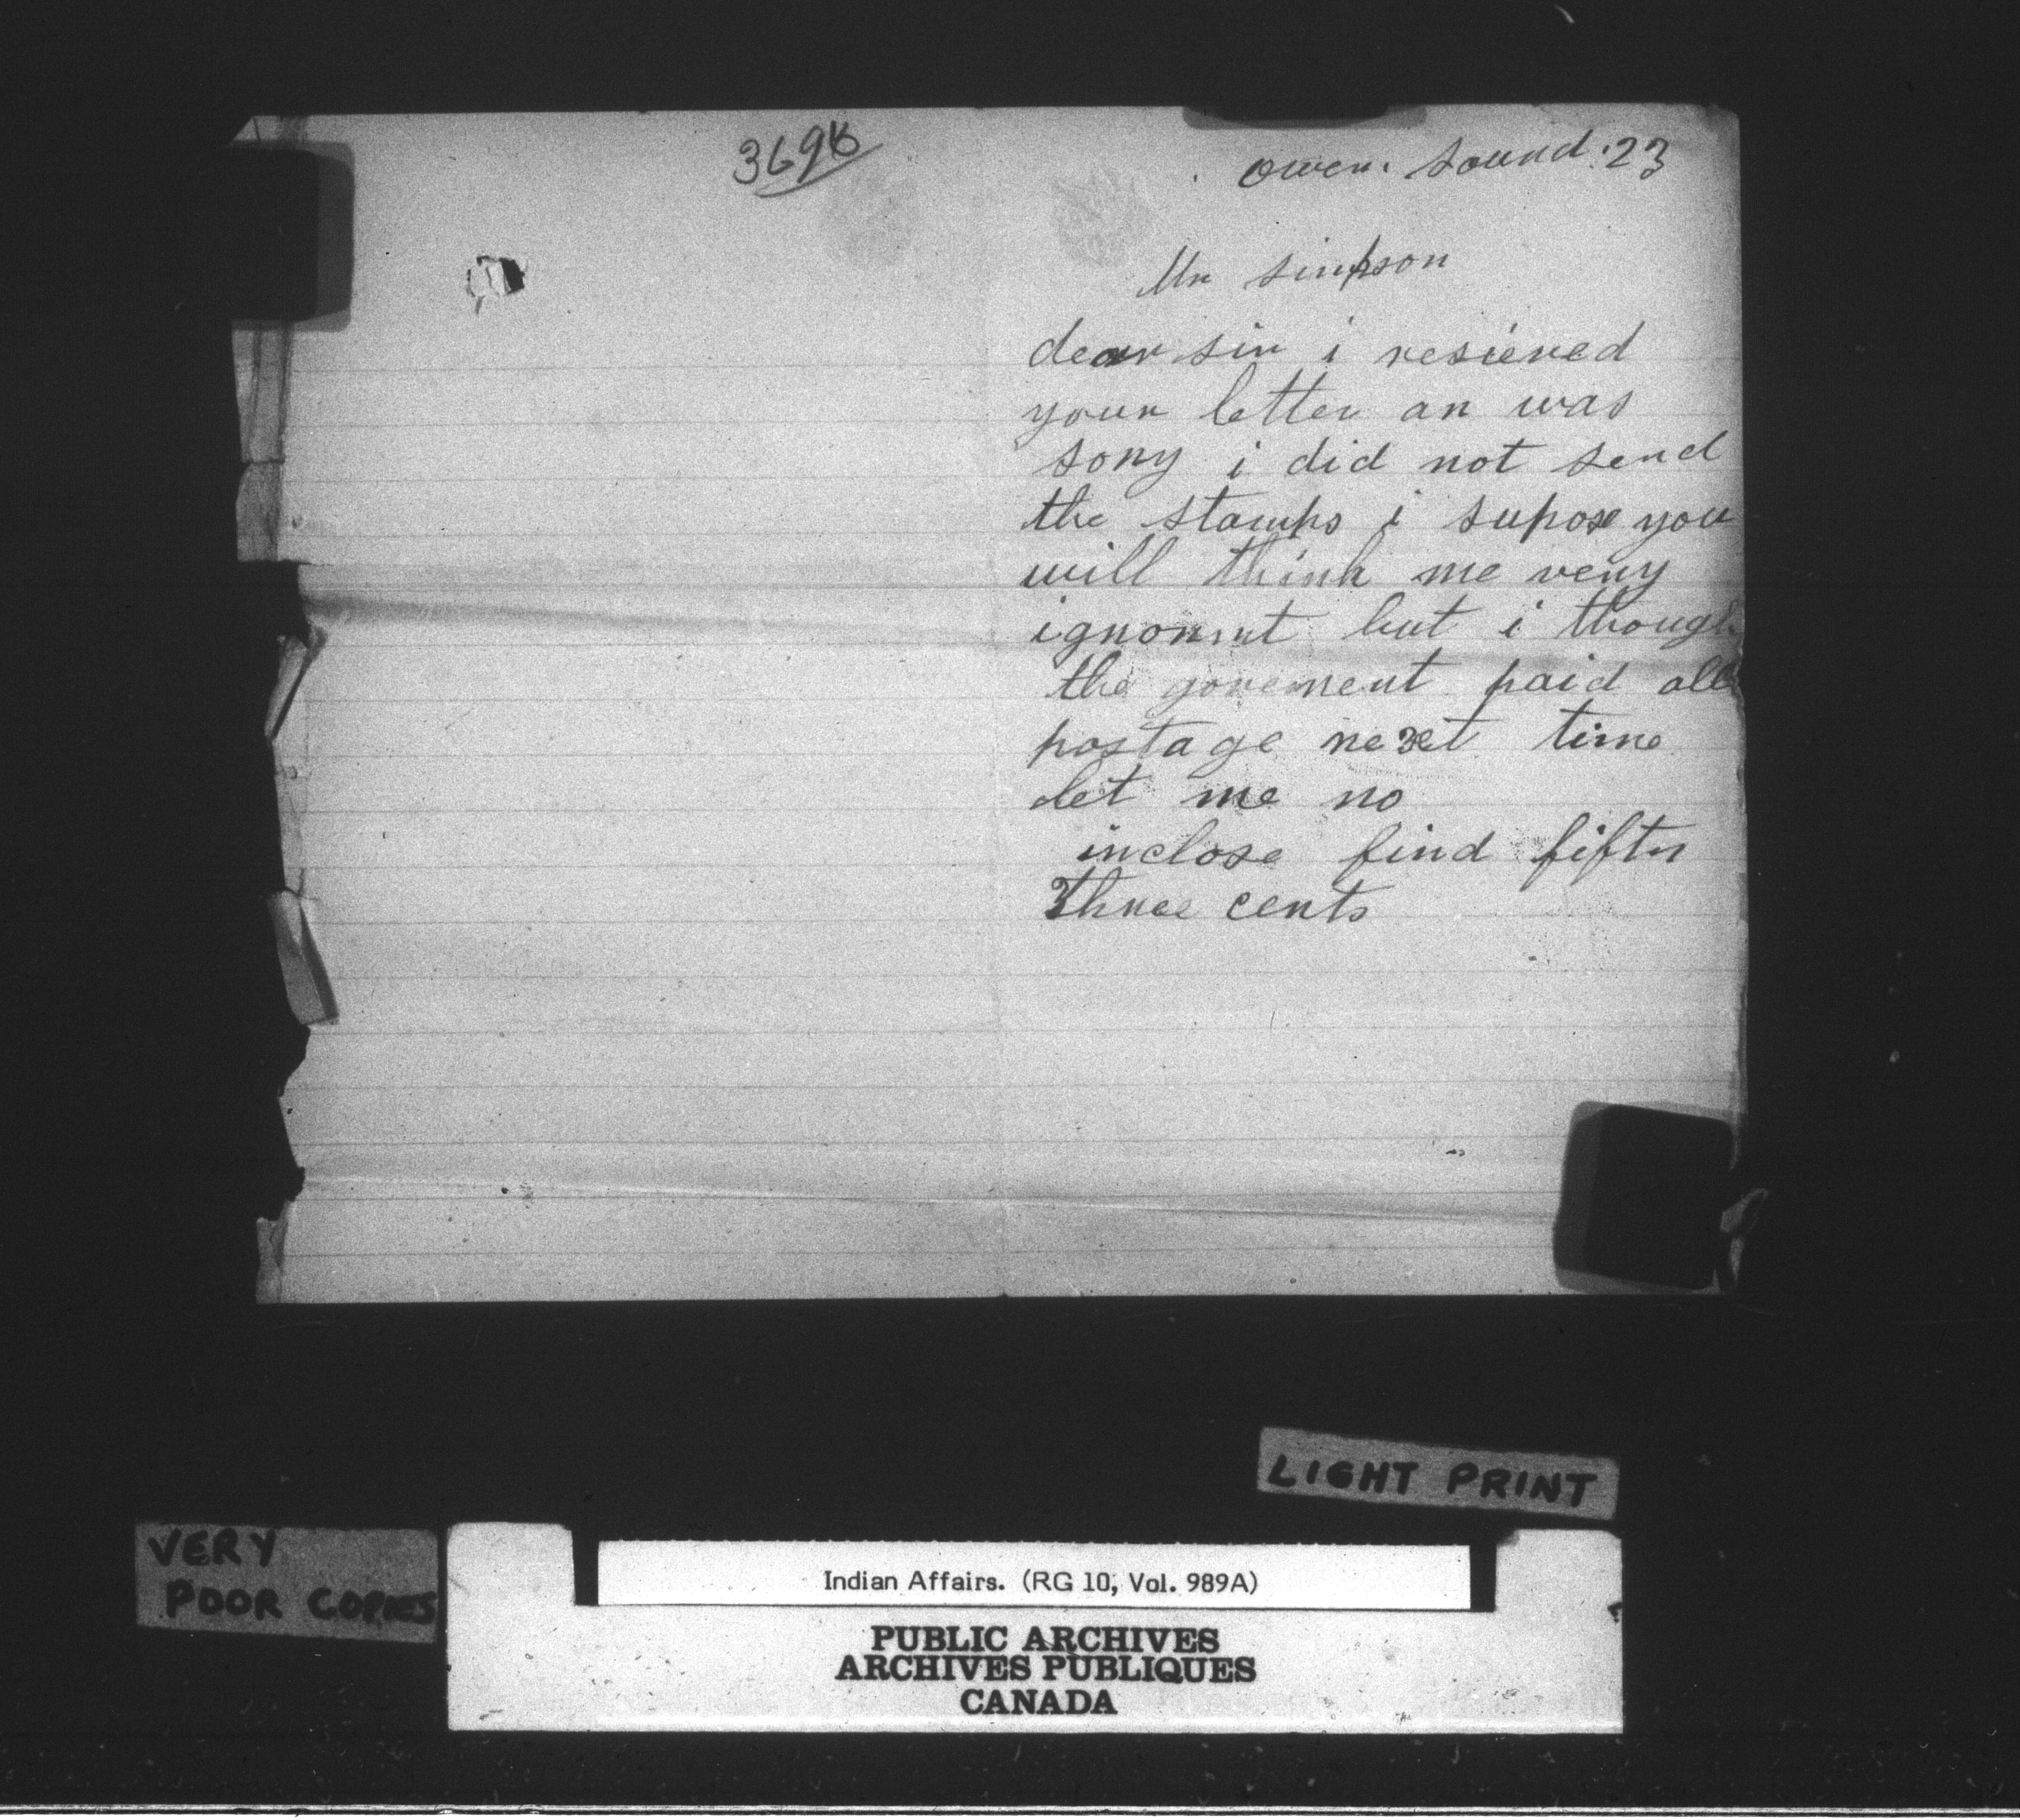 369
owen. sound. 23
Mr simpson
dear sir i resieved
your letter an was
sorry i did not send
the stamps i supose you
will think me very
ignorint but i though
the goverment paid all
postage next time
let me no
inclose find fifty
three cents
LIGHT PRINT
VERY
POOR COPIES
Indian Affairs. (RG 10, Vol. 989A)
PUBLIC ARCHIVES
ARCHIVES PUBLIQUES
CANADA